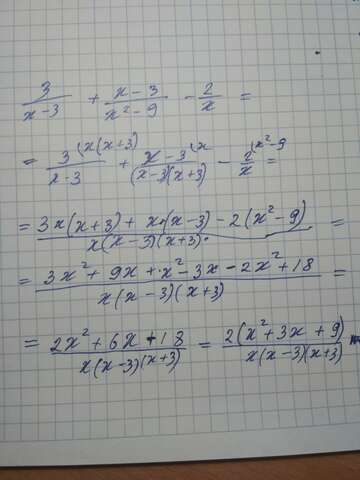 3/(x-3) + (x-3)/(x²-9) - 2/x =
= 3^(x(x+3)/(x-3) + x-3^(x/((x-3)(x+3)) - 2^(x²-9/x =
= (3x(x+3) + x·(x-3) - 2(x²-9))/(x(x-3)(x+3)) =
= (3x² + 9x + x² - 3x - 2x² + 18)/(x(x-3)(x+3)) =
= (2x² + 6x + 18)/(x(x-3)(x+3)) = (2(x² + 3x + 9))/(x(x-3)(x+3))